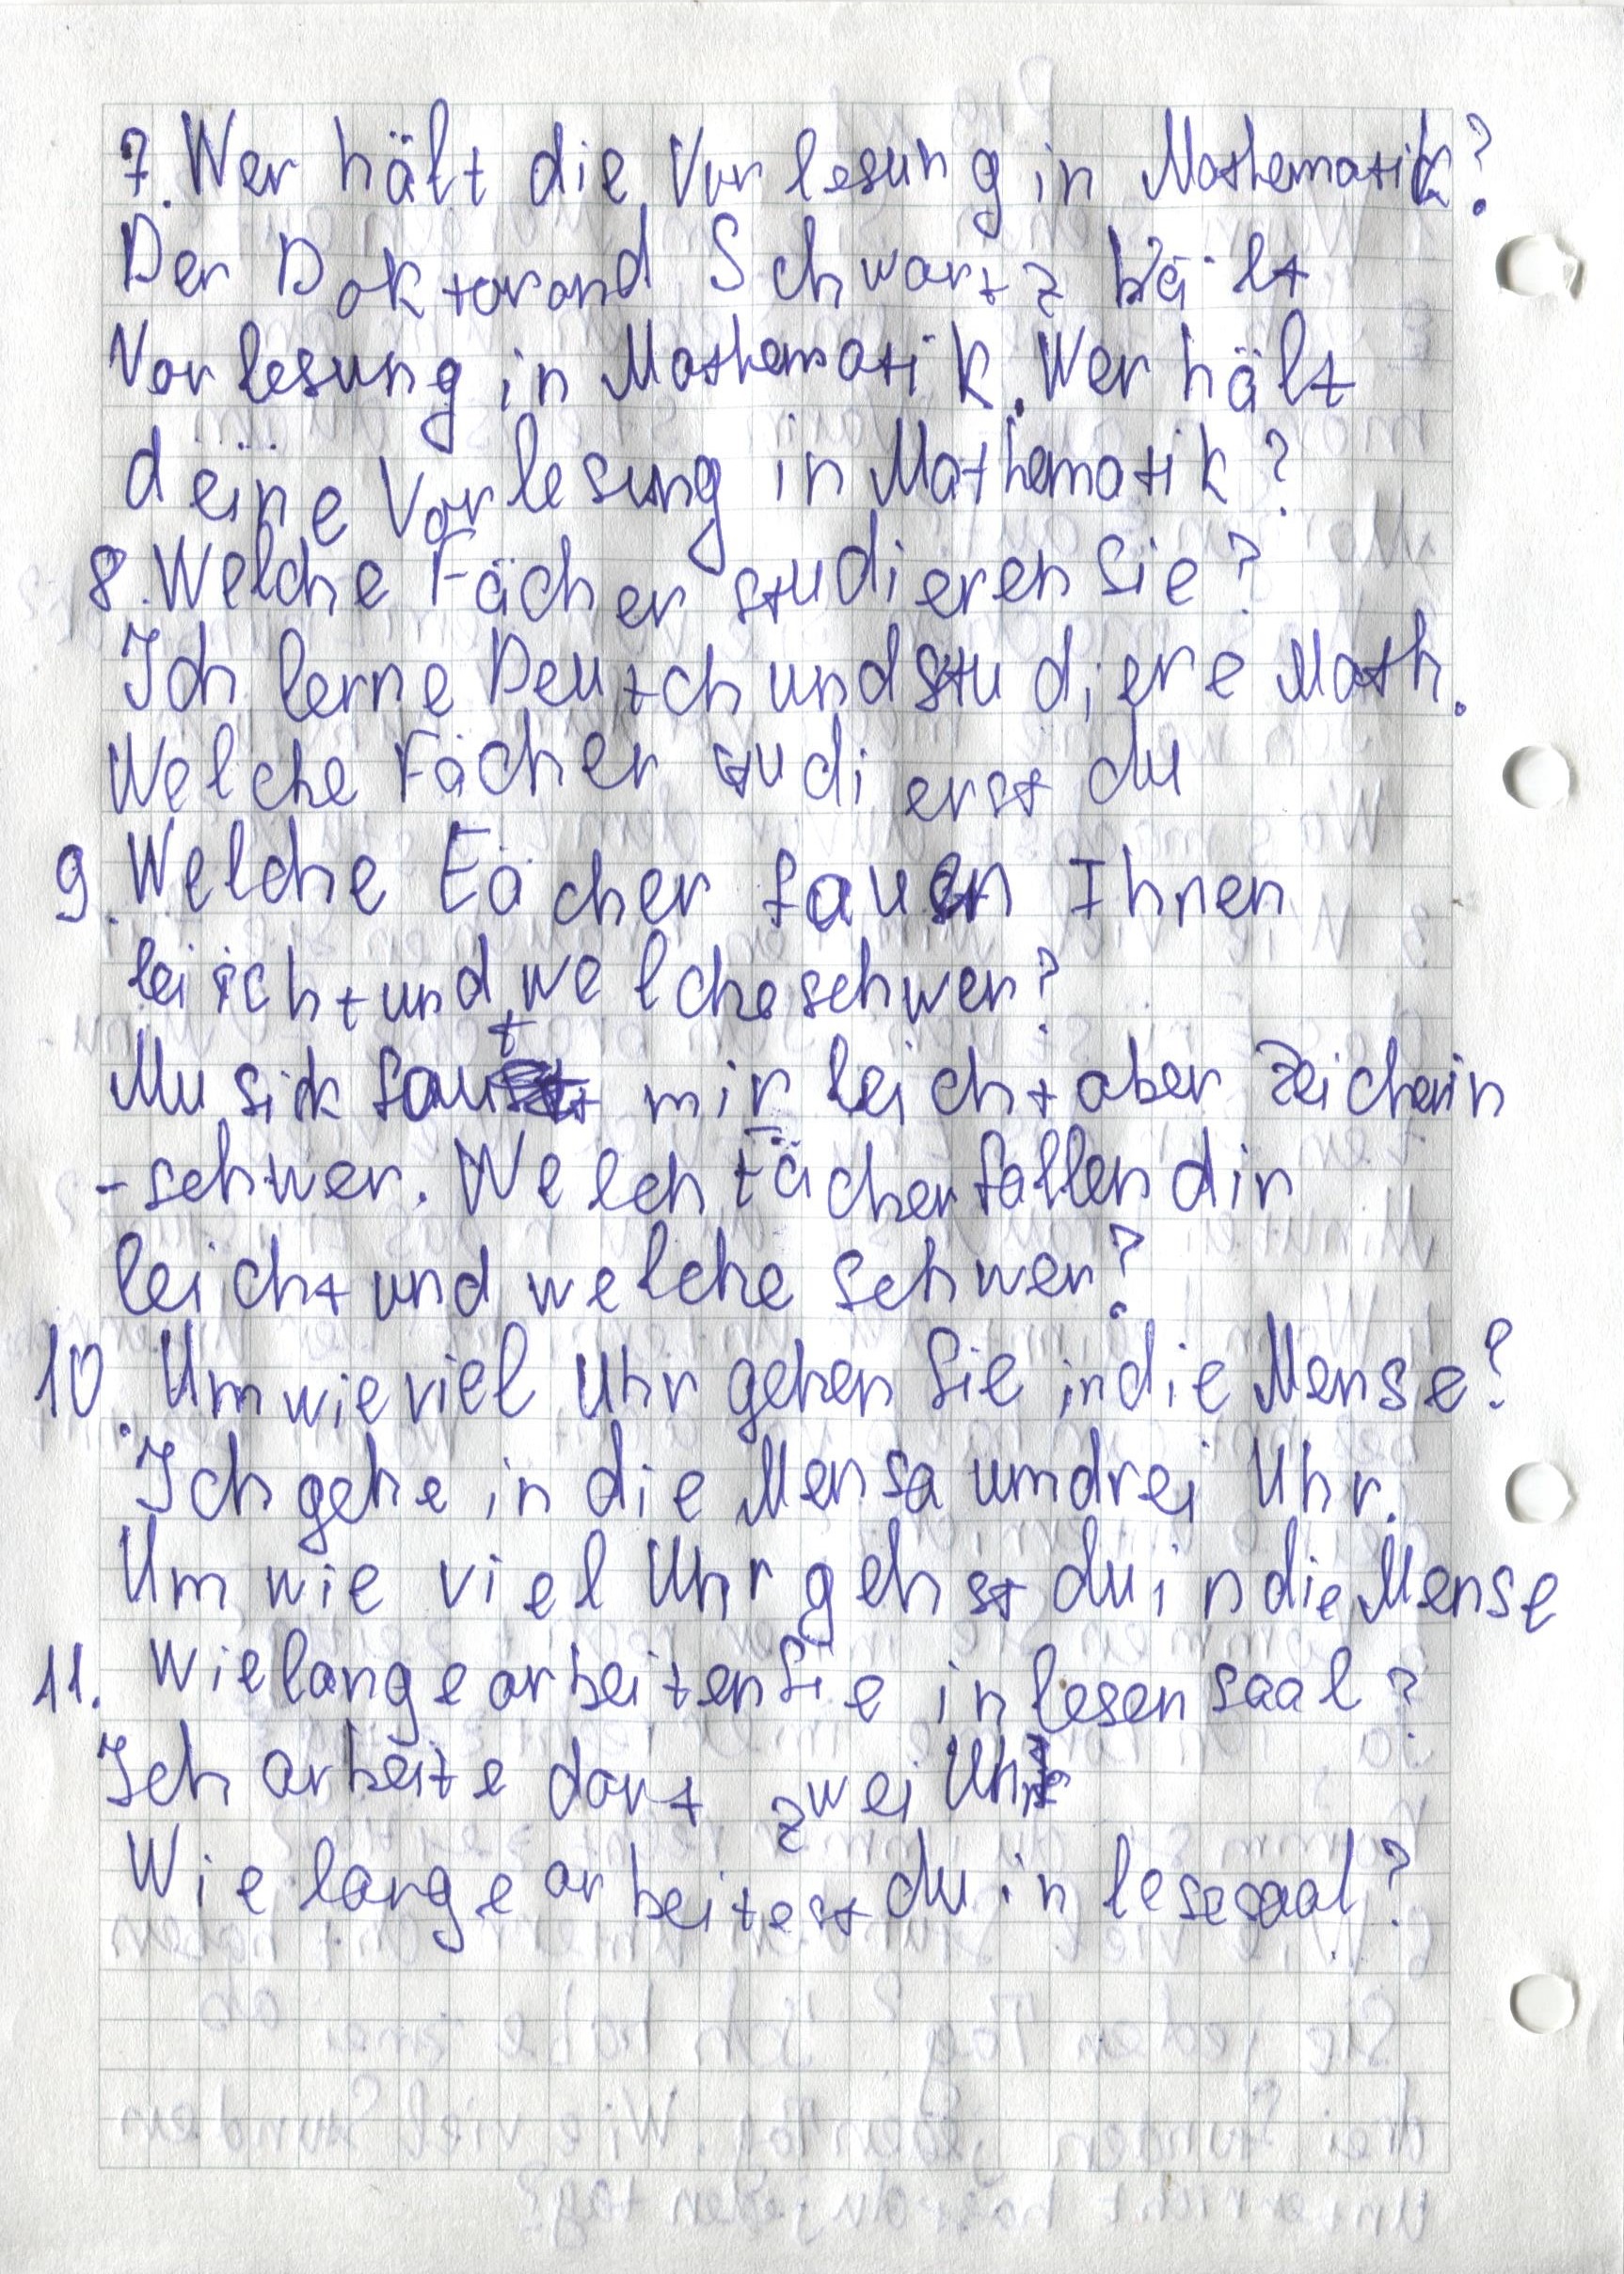 7. Wer hält die Vorlesung in Mathematik?
Der Doktorand Schwartz hält
Vorlesung in Mathematik. Wer hält
deine Vorlesung in Mathematik?
8. Welche Fächer studieren Sie?
Ich lerne Deutch und studiere Math.
Welche Fächer studierst du
9. Welche Fächer fauen Ihnen
leicht und welche schwer?
Musik faut mir leicht aber Zeichein
- schwer. Welch Fächer fallen dir
leicht und welche schwer?
10. Um wie viel Uhr gehen Sie in die Mense?
Ich gehe in die Mensa um drei Uhr.
Um wie viel Uhr gehst du in die Mense
11. Wie lange arbeiten Sie in lesensaal?
Ich arbeite dort zwei Uhr
Wie lange arbeitest du in lesesaal?